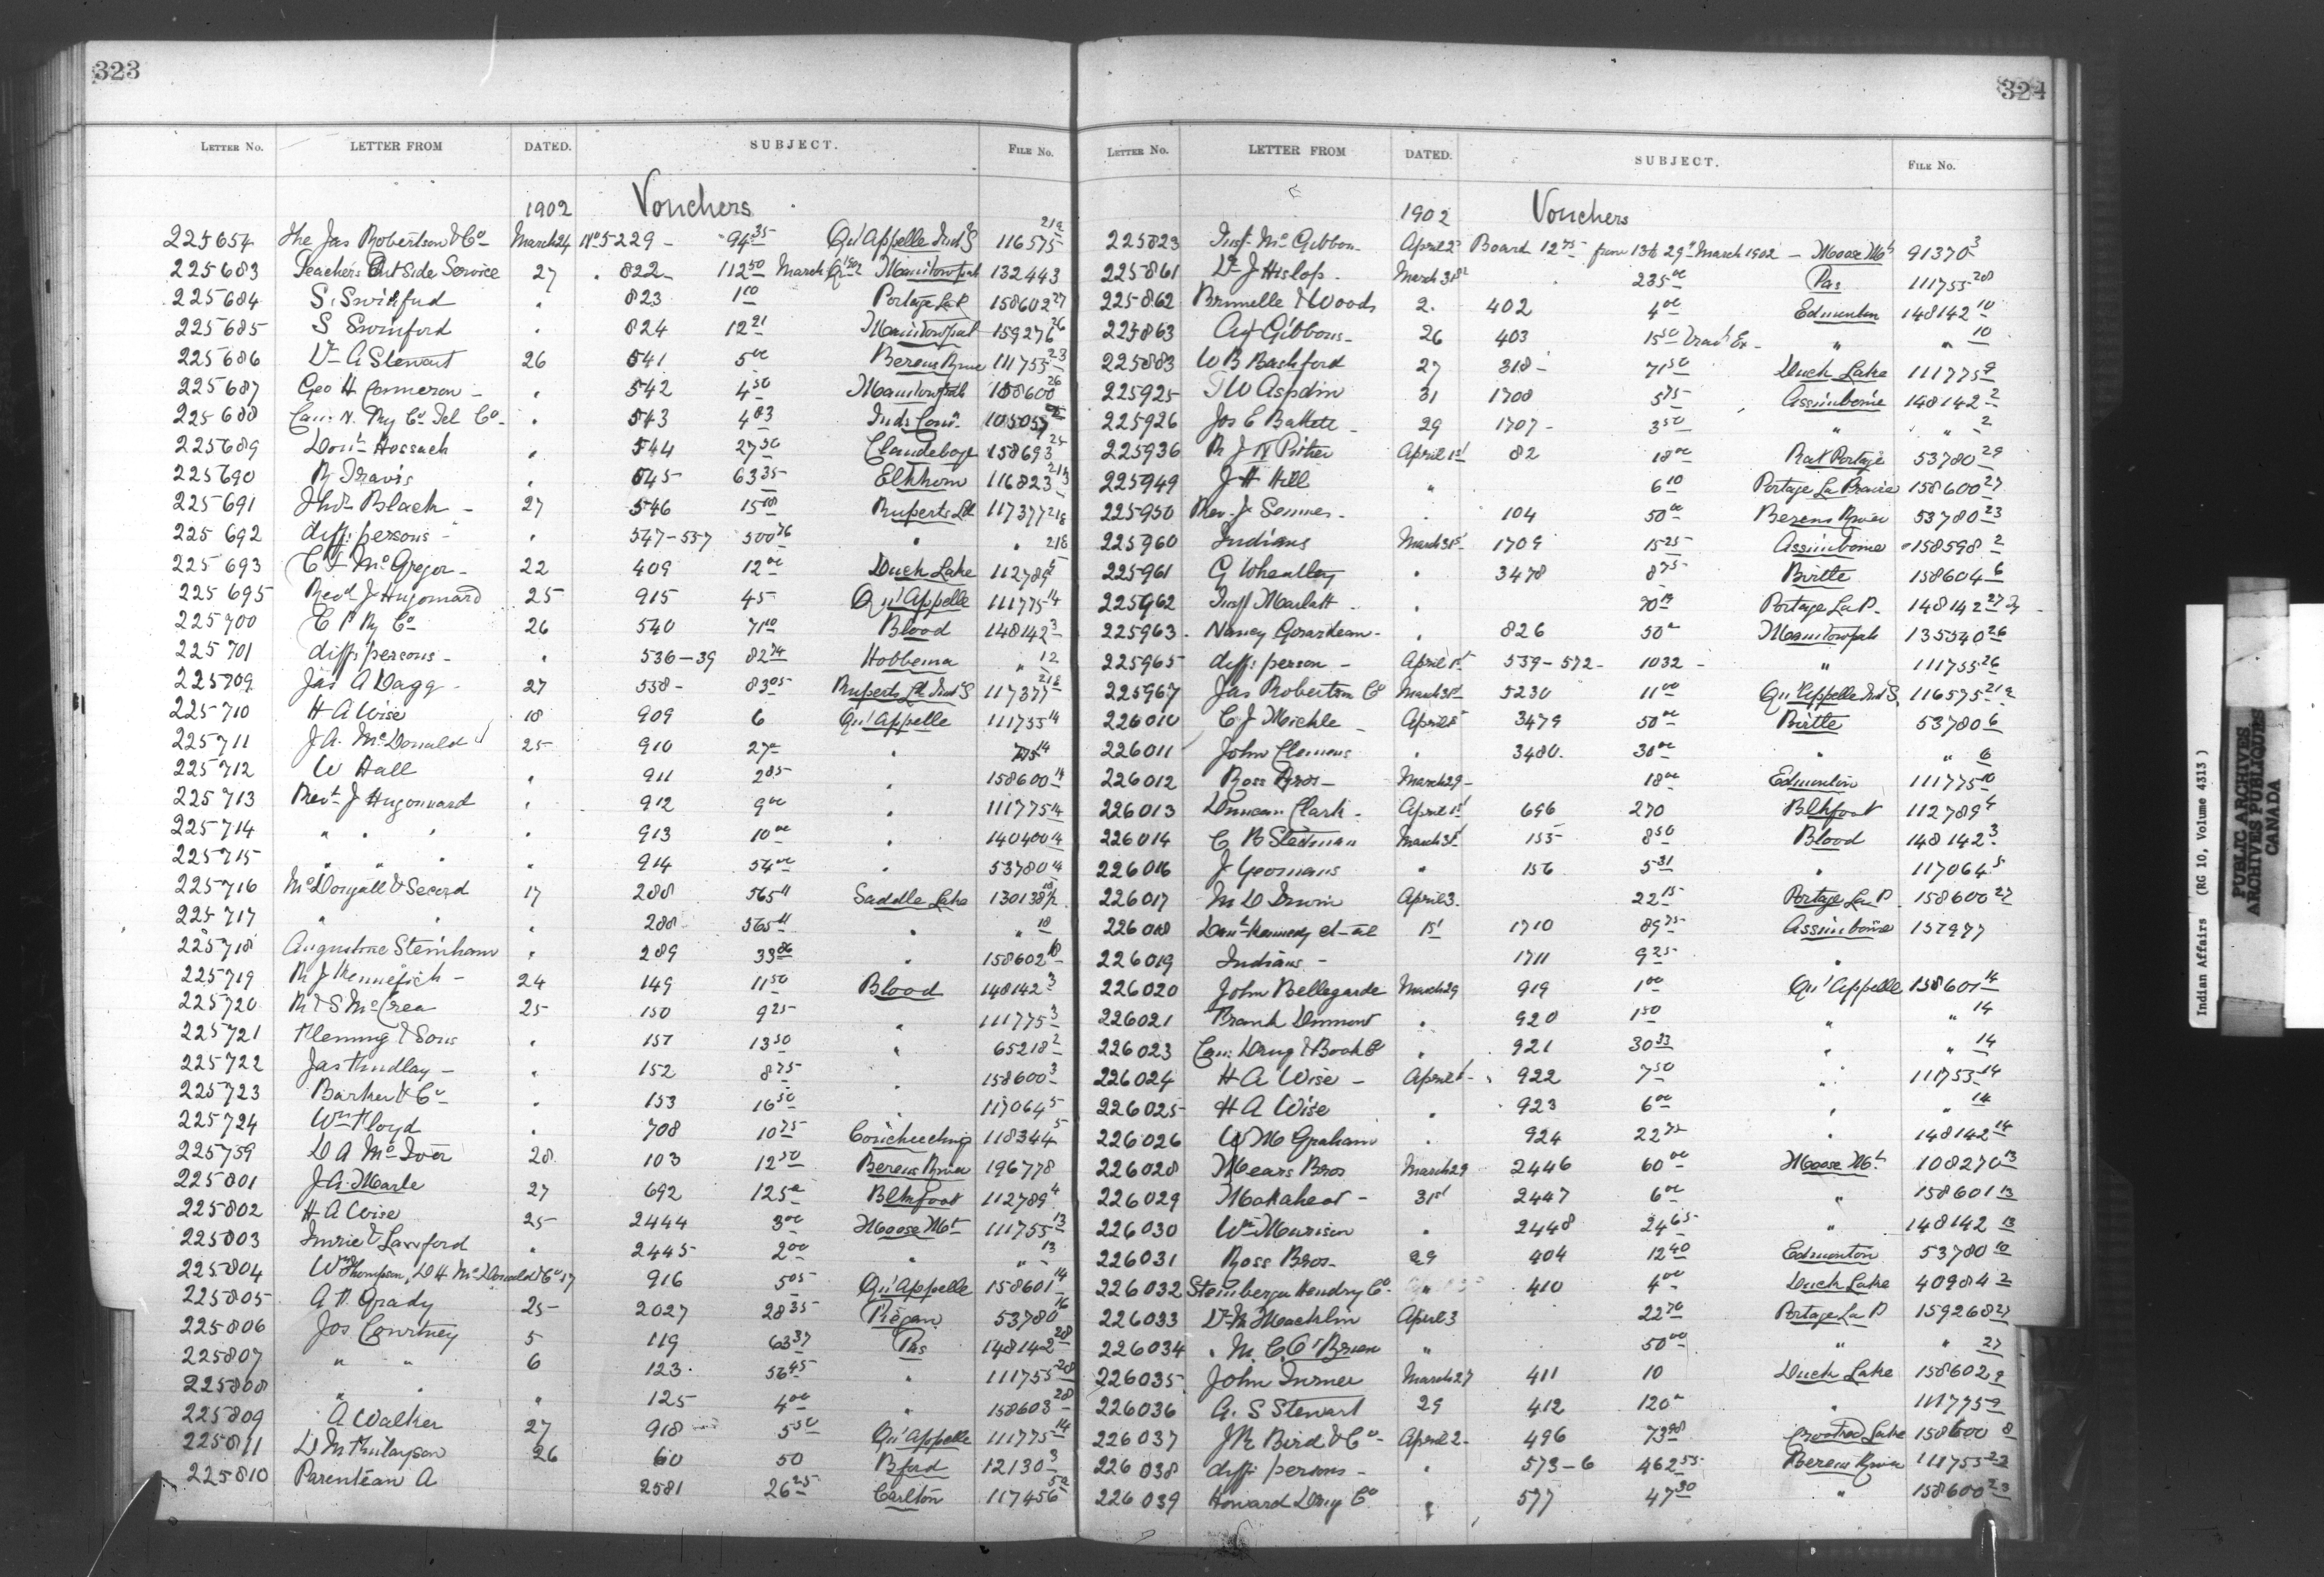 323
LETTER No. LETTER FROM DATED. SUBJECT. FILE No.
1902 Vouchers
225654 The Jas Robertson & Co March 24 No 5229 - 94 35 Qu'Appelle Ind S 116575 21a
225683 Teachers Outside Service 27 822 - 112 50 March Manitowpah 132443
225684 S. Swinford " 823 1 00 Portage La P. 158602 27
225685 S Swinford " 824 12 21 Manitowpah 159276 26
225686 Dr A Stewart 26 541 5 00 Berens River 111755 23
225687 Geo H Cameron - " 542 4 50 Manitowpah 158600 26
225688 Can. N. Ry Co Tel Co - " 543 4 83 Inds Com 105057
225689 Hossack " 544 27 50 Clandeboye 158693 25
225690 R Travis " 545 63 35 Elkhorn 116823
225691 Black - 27 546 15 00 Ruperts Ld 117377 218
225692 diff. persons - " 547-557 500 76 " " 218
225693 McGregor - 22 409 12 00 Duck Lake 112789 9
225695 Revd J Hugonard 25 915 45 Qu'Appelle 111775 14
225700 C P Ry Co 26 540 71 10 Blood 148142 3
225701 diff. persons - " 536-39 82 74 Hobbema " 12
225709 Jas A Dagg - 27 538 - 83 05 Ruperts Ld Ind S 117377 218
225710 H A Wise 18 909 6 Qu'Appelle 111755 14
225711 J. A. McDonald 25 910 27 - " 775 14
225712 W Hall " 911 2 85 " 158600 14
225713 Revd J Hugonnard " 912 9 00 " 111775 14
225714 " " " " 913 10 00 " 140400 14
225715 " " " " 914 54 00 " 53780 14
225716 McDougall & Secord 17 288 565 11 Saddle Lake 130138
225717 " " " 288 565 11 " " 18
225718 Augustine Steinhauer " 289 33 86 " 158602 18
225719 R J Hennefick - 24 149 11 50 Blood 148142 3
225720 R & S McCrea 25 150 9 25 " 111775 3
225721 Fleming & Sons " 151 13 50 " 65218 2
225722 Jas Findlay - " 152 8 75 " 158600 3
225723 Barker & Co - " 153 16 50 " 117064 5
225724 Wm Floyd " 708 10 75 Coucheching 118344 5
225759 D A McIver 28 103 12 50 Berens River 196778
225801 J. A. Markle 27 692 125 Blkfoot 112789 4
225802 H A Wise 25 2444 3 00 Moose Mt 111755 13
225803 Imrie & Lawford " 2445 2 00 " " 13
225804 Wm Thompson, D H McDonald & Co 17 916 5 05 Qu'Appelle 158601 14
225805 A. P. Grady 25 2027 28 35 Piegan 53780 16
225806 Jos Courtney 5 119 63 37 Pas 148142 28
225807 " " 6 123 56 45 " 111755 28
225808 " " " 125 4 00 " 158603 28
225809 A Walker 27 918 5 50 Qu'Appelle 111775 14
225811 D M Finlayson 26 60 50 Bford 12130 3
225810 Parenteau A 2581 26 25 Carlton 117456
324
LETTER No. LETTER FROM DATED. SUBJECT. FILE No.
1902 Vouchers
225823 Insp. McGibbon April 2 Board 12 75 from 13 to 29th March 1902 - Moose Mt 91370 3
225861 Dr J Hislop. March 31st " 235 00 Pas 111755 28
225862 Brunelle & Woods 2. 402 4 00 Edmonton 148142 10
225863 Gibbons - 26 403 15 50 Trav Ex - " " 10
225883 W B Bashford 27 318 - 71 50 Duck Lake 111775 9
225925 T W Aspdin 31 1708 5 75 Assiniboine 148142 2
225926 Jos E 29 1707 - 3 50 " " 2
225936 R J N Pither April 1st 82 18 00 Rat Portage 53780 29
225949 J H Hill " 6 10 Portage La Prairie 158600 27
225950 Rev. J Semmens - . 104 50 00 Berens River 53780 23
225960 Indians March 31st 1709 15 25 Assiniboine 158598 2
225961 G Wheatley " 3478 8 75 Birtle 158604 6
225962 Insp Marlatt - . 70 Portage La P. 148142 27
225963 Nancy Gerardeau - " 826 50 Manitowpah 135540 26
225965 diff. person - April 1st 559-572 - 1032 - " 111755 26
225967 Jas Robertson Co March 31st 5230 11 00 Qu'Appelle Ind S. 116575 21a
226010 C. J Mickle - April 5 3479 50 00 Birtle 53780 6
226011 John Clemens " 3480. 30 00 " " 6
226012 Ross Bros - March 29 - 18 00 Edmonton 111775 10
226013 Duncan Clark - April 1st 696 270 Blkfoot 112789 4
226014 C B Stedman March 31 155 8 50 Blood 148142 3
226016 J Yeomans " 156 5 31 " 117064 5
226017 M D Irwin April 3. 22 15 Portage La P. 158600 27
226018 Danl Kennedy et al 1st 1710 89 75 Assiniboine 157977
226019 Indians - 1711 9 25 "
226020 John Bellegarde March 29 919 1 00 Qu'Appelle 158601 14
226021 Frank Dumont " 920 1 50 " " 14
226023 Can. Drug & Book Co " 921 30 33 " " 14
226024 H A Wise - April 1 - 922 7 50 " 111755 14
226025 H A Wise " 923 6 00 " " 14
226026 W M Graham " 924 22 75 " 148142 14
226028 Mears Bros March 29 2446 60 00 Moose Mt 108270 13
226029 Mokaheat - 31st 2447 6 00 " 158601 13
226030 Wm Murison " 2448 24 65 " 148142 13
226031 Ross Bros - 29 404 12 40 Edmonton 53780 10
226032 Steinberger Hendry Co. " 410 4 00 Duck Lake 40984 2
226033 Dr April 3 22 70 Portage La P 159268 27
226034 M. C. O'Brien " 50 00 " " 27
226035 John Turner March 27 411 10 Duck Lake 158602 9
226036 G. S Stewart 29 412 120 " 111775 9
226037 J R Bird & Co - April 2 - 496 73 98 Crooked Lake 158600 8
226038 diff. persons - " 573-6 462 55 Berens River 111755 23
226039 Howard Drug Co " 577 47 30 " 158600 23
Indian Affairs (RG 10, Volume 4313 )
PUBLIC ARCHIVES
ARCHIVES PUBLIQUES
CANADA